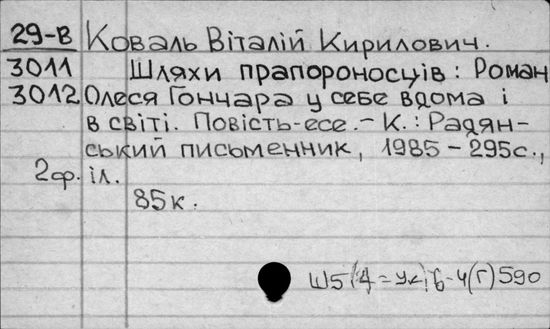 29-В Коваль Віталій Кирилович.
3011 Шляхи прапороносців: Роман
3012 Олеся Гончара у себе вдома і
в світі. Повість-есе. - К.: Радян-
ський письменник, 1985 - 295с.,
2ф. іл.
85к.
Ш5(4=Ук)6-4(Г)590